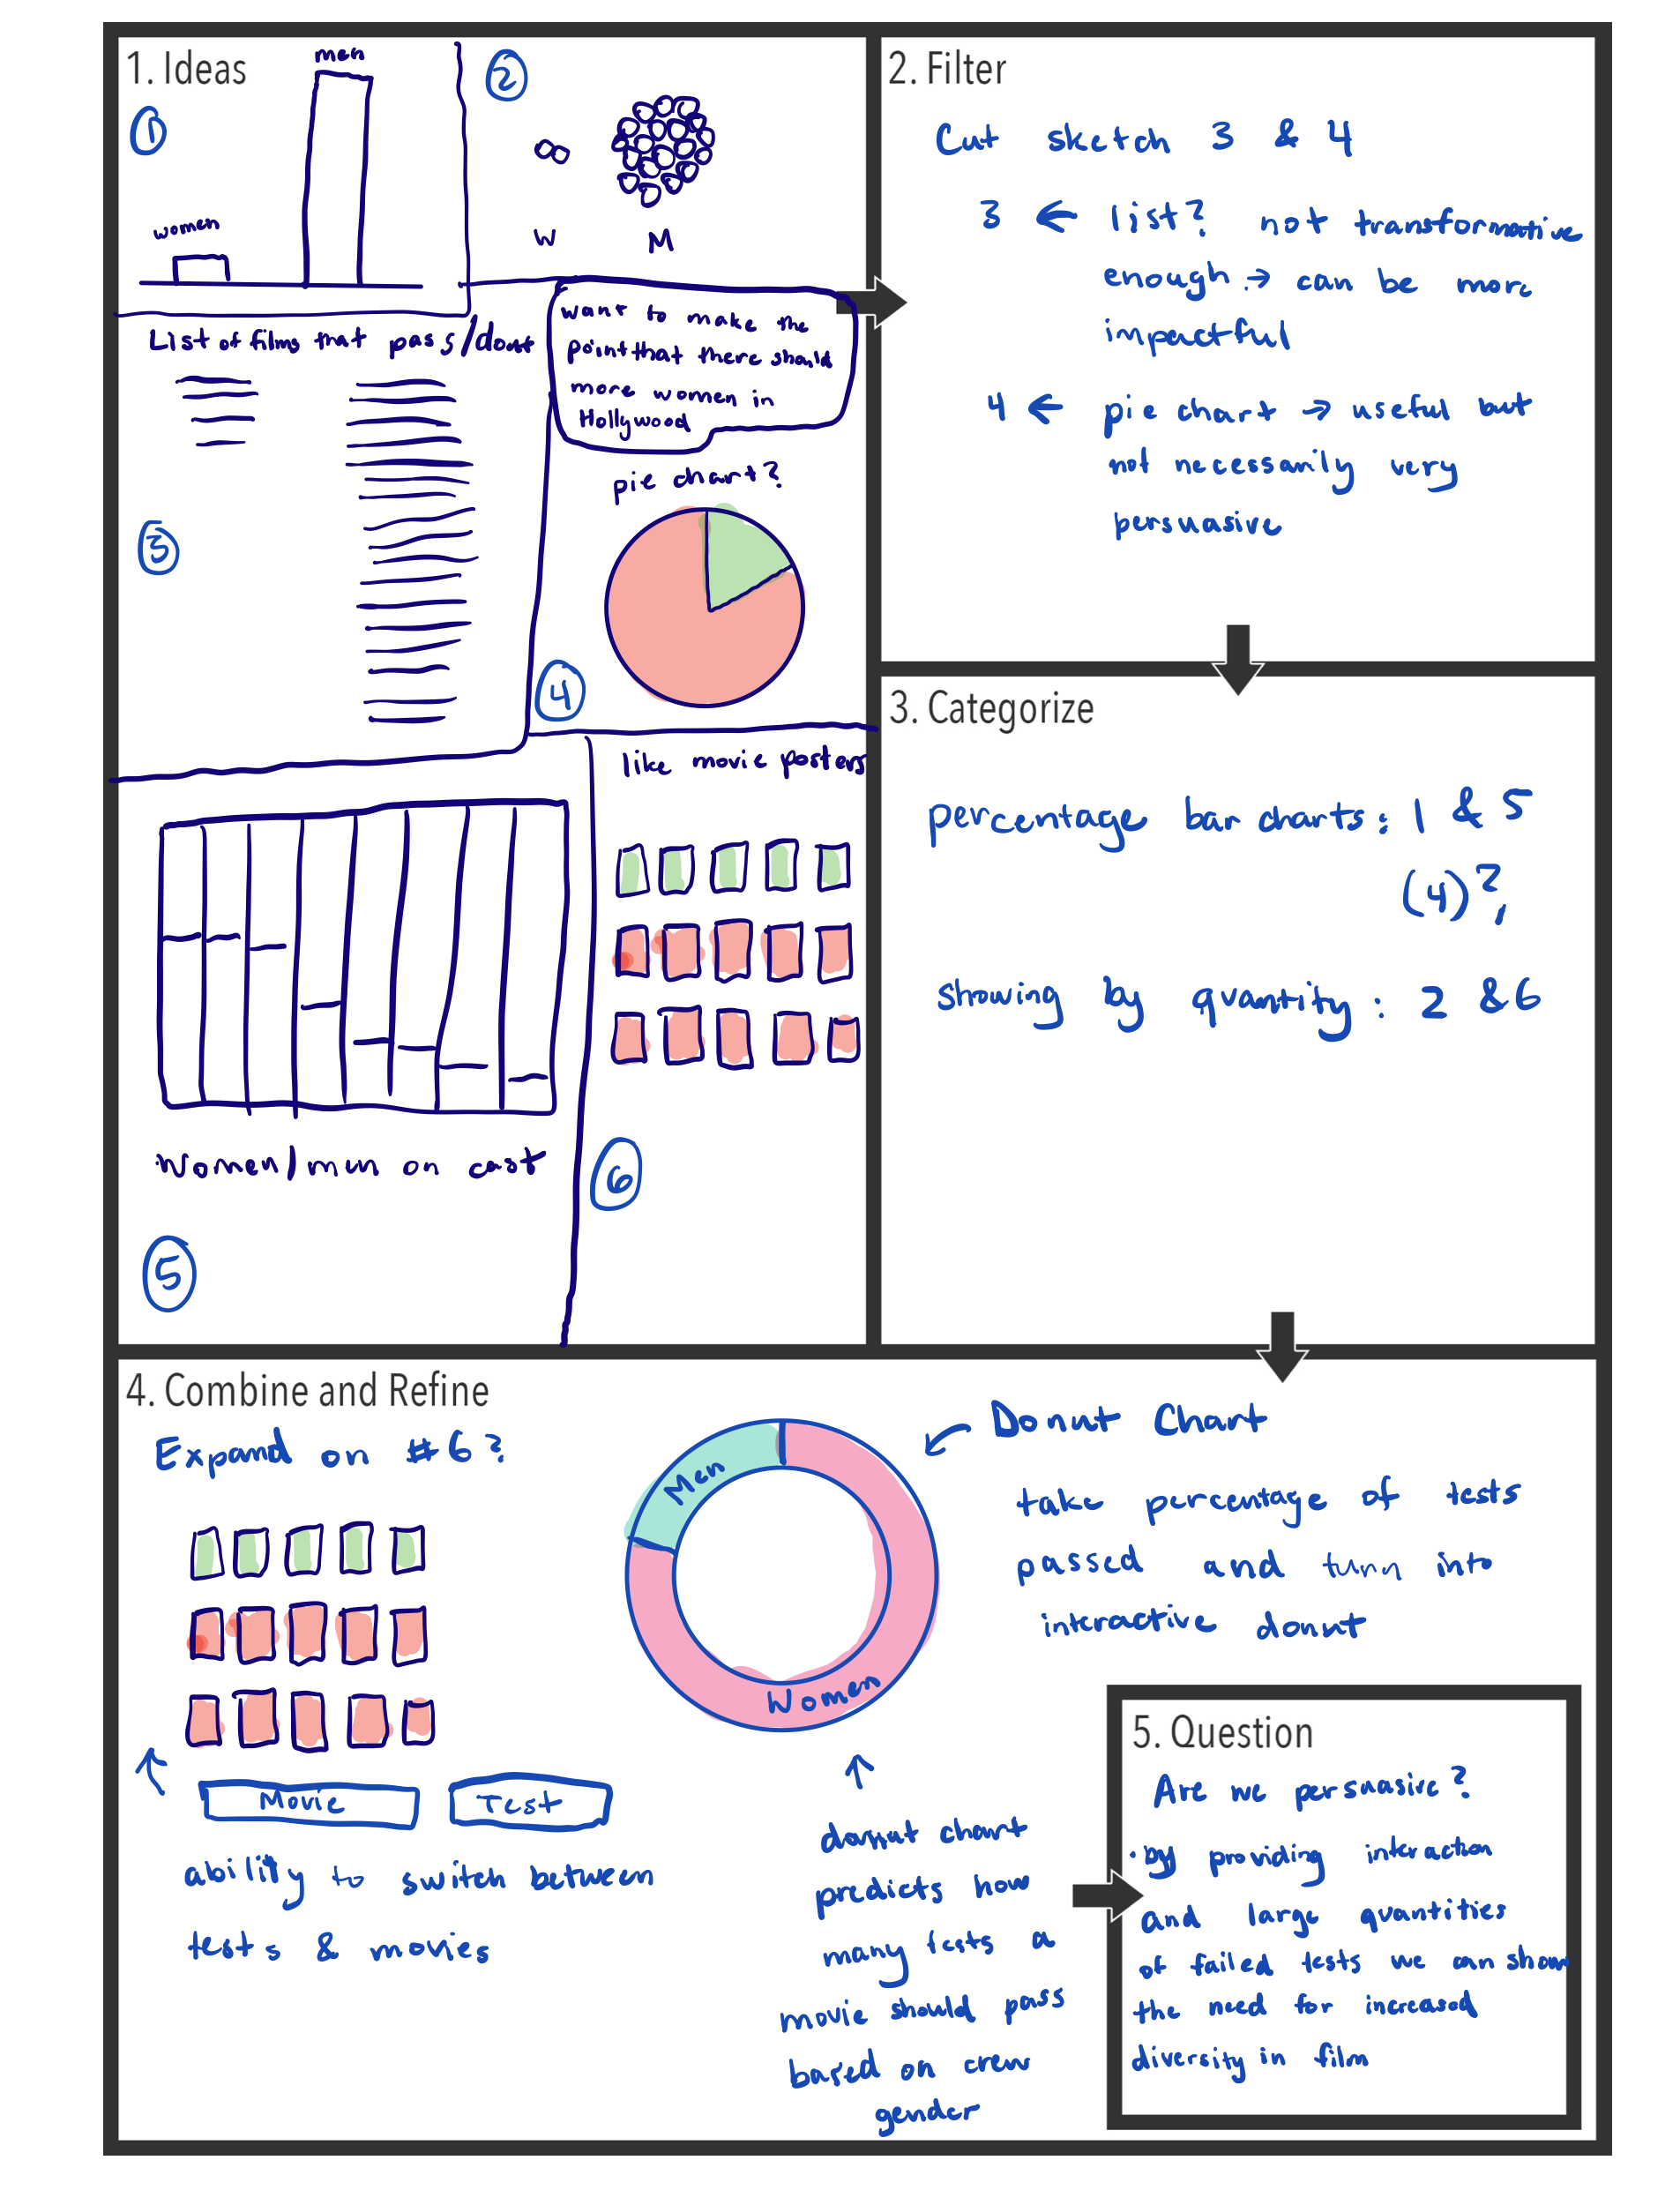 1. Ideas
1
men
women
2
W
M
List of films that pass/dont
3
want to make the
point that there should
more women in
Hollywood
pie chart?
4
Women/men on cast
5
like movie posters
6
2. Filter
Cut sketch 3 & 4
3 ← list? not transformative
enough → can be more
impactful
4 ← pie chart → useful but
not necessarily very
persuasive
3. Categorize
percentage bar charts: 1 & 5
(4)?
showing by quantity: 2 & 6
4. Combine and Refine
Expand on #6?
Movie
Test
ability to switch between
tests & movies
Men
Women
Donut Chart
take percentage of tests
passed and turn into
interactive donut
donut chart
predicts how
many tests a
movie should pass
based on crew
gender
5. Question
Are we persuasive?
· by providing interaction
and large quantities
of failed tests we can show
the need for increased
diversity in film